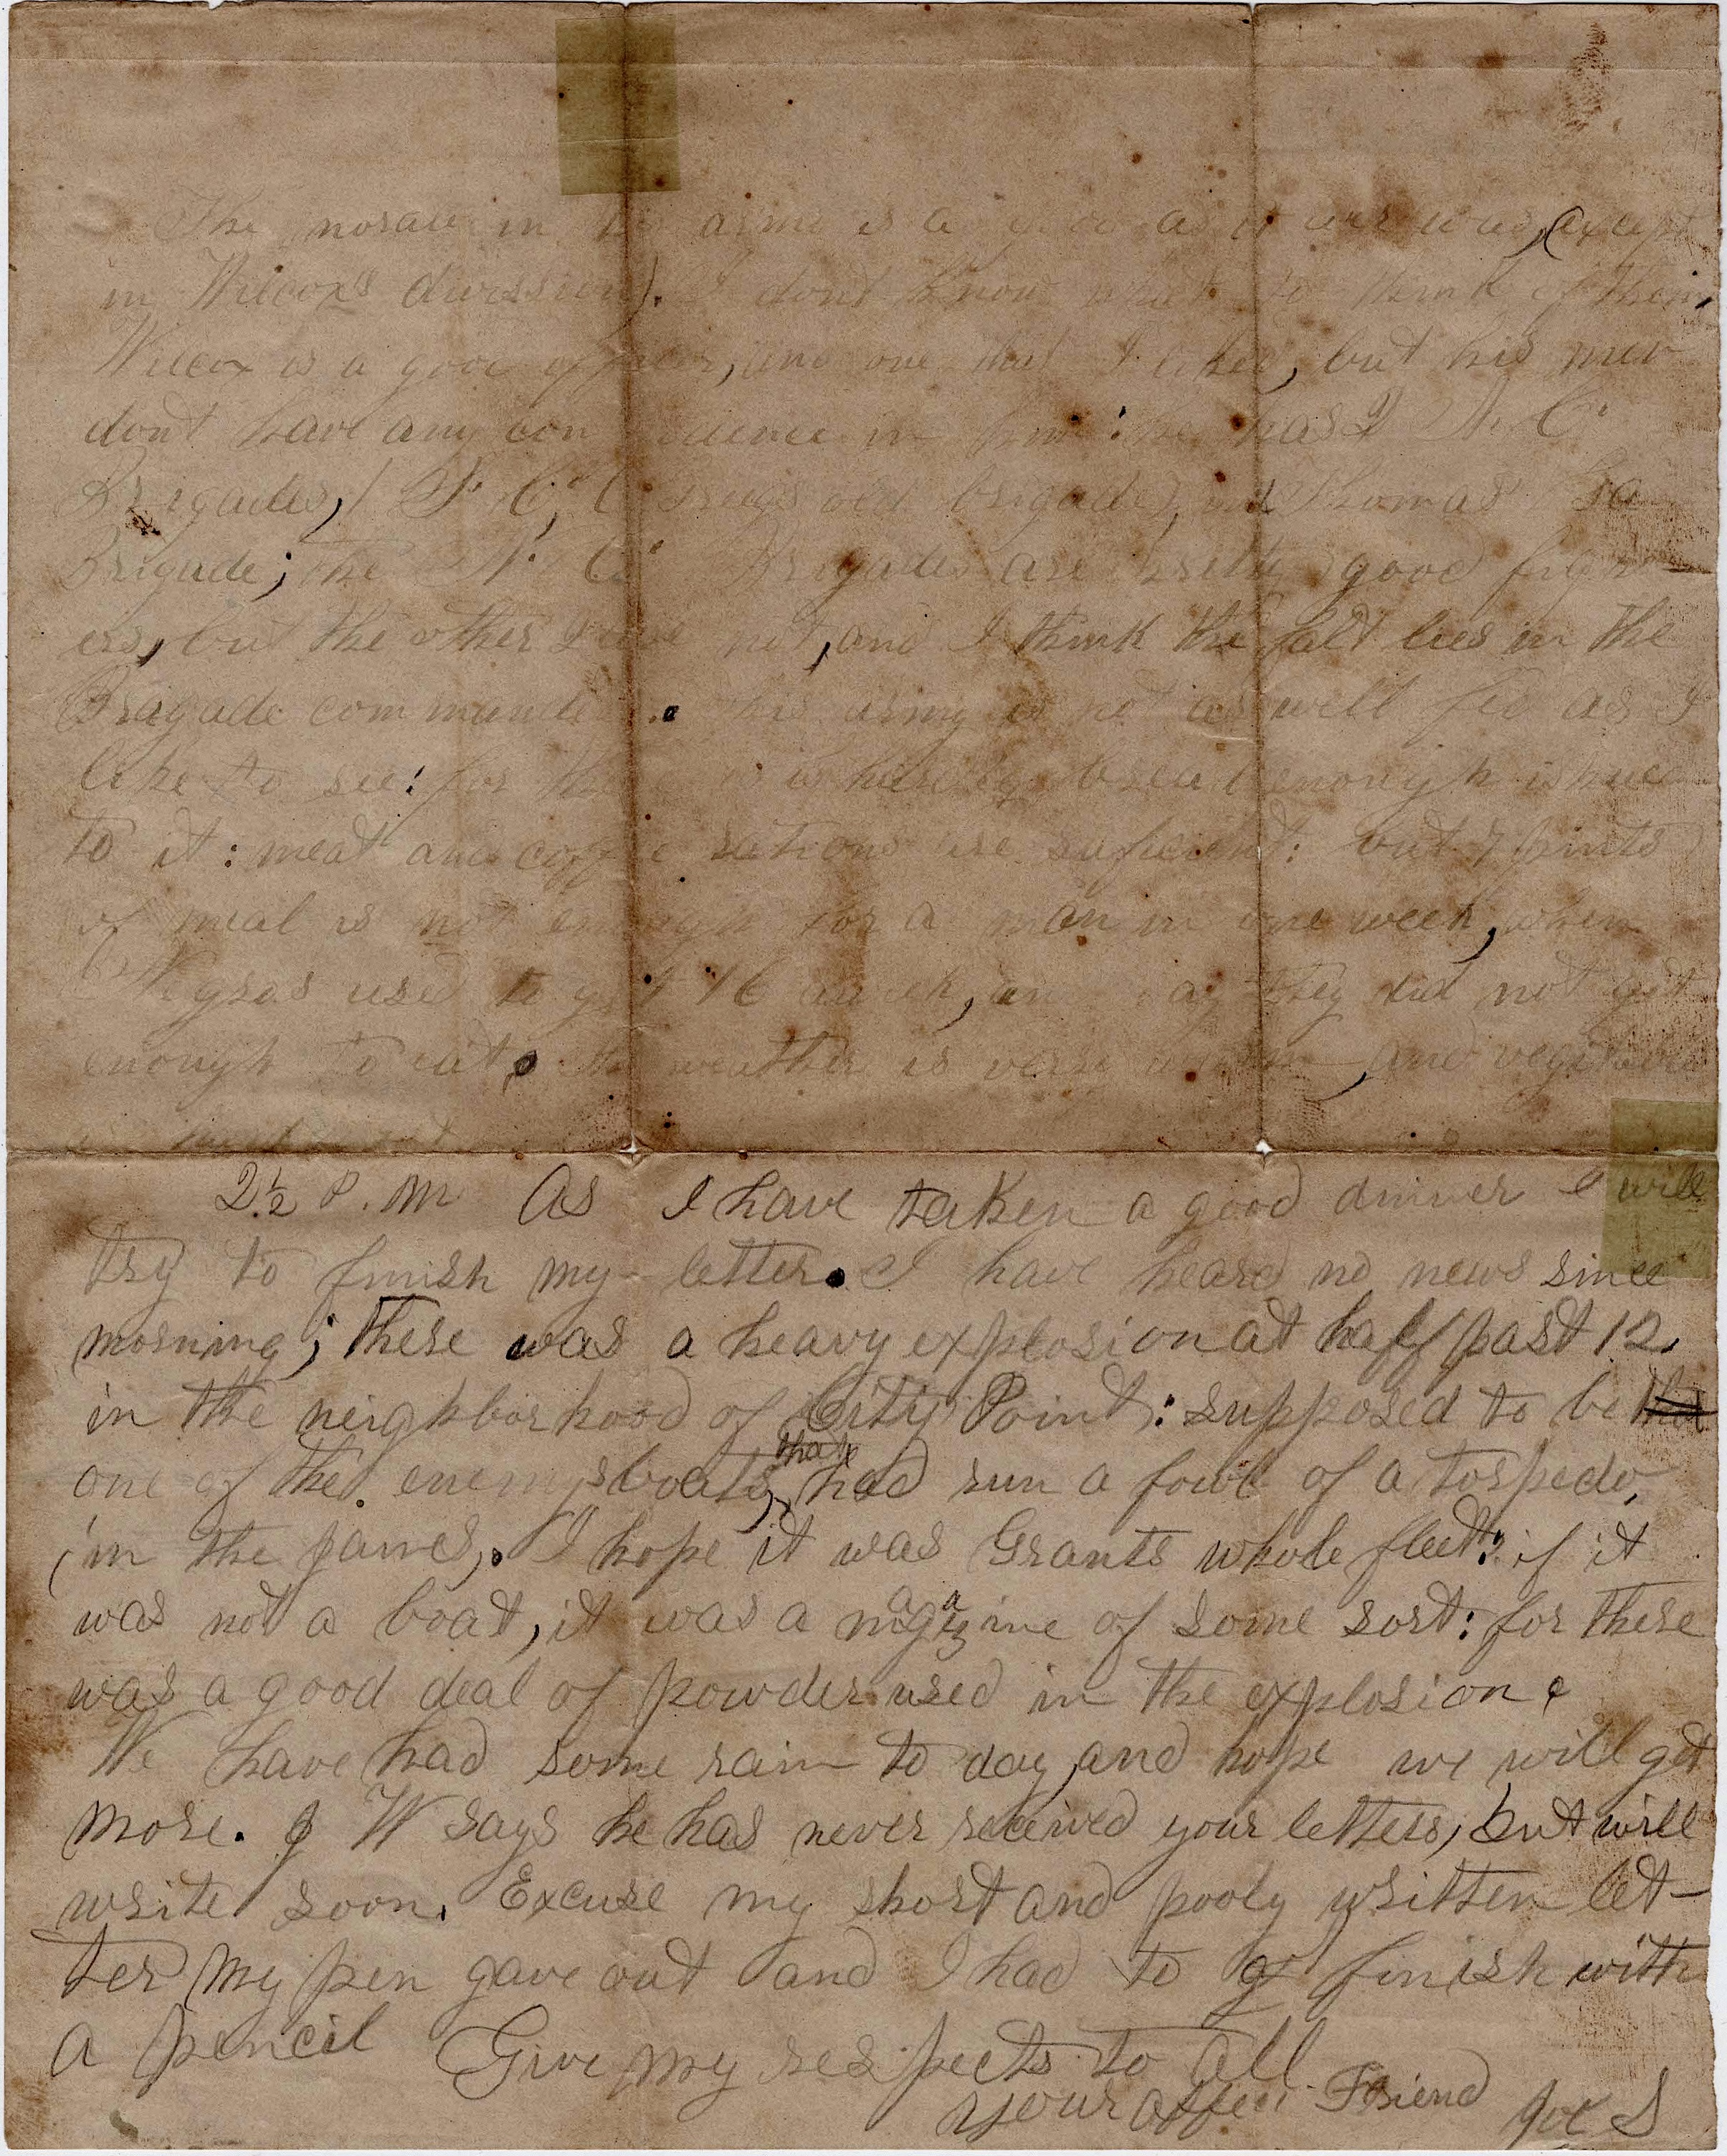 The morale in the army is as good as it ever was, (except
in Wilcox's division). I dont know what to think of them,
Wilcox is a good officer, and one that I like, but his men
dont have any confidence in him: he has 2 N. C.
Brigades, 1 S. C., ( old brigade), and Thomas' Ga
Brigade; the N. C. Brigades are pretty good figh-
ers, but the other 2 are not, and I think the falt lies in the
Bragade commande . this army is not as well fed as I
like to see: for there is hardly bread enough ishued
to it: meat and coffe rations are suficient: but 7 pints
of meal is not enough for a man in one week, when
Negros used to get 16 a week, and say they did not get
enough to eat. the weather is very warm, and vegitation

2 1/2 P. M As I have taken a good dinner I will
try to finish my letter. I have heard no news since
morning; there was a heavy explosion at half past 12.
in the neighborhood of City Point: supposed to be
one of the enemys boats, that had run a fowl of a torpedo,
in the James,. I hope it was Grants whole fleet: if it
was not a boat, it was a magazine of some sort: for there
was a good deal of powder used in the explosion.
We have had some rain to day, and hope we will get
more. J W says he has never received your letters, but will
write soon. Excuse my short and pooly written let-
ter my pen gave out and I had to finish with
a pencil Give my respects to all
your affec Friend Joe S